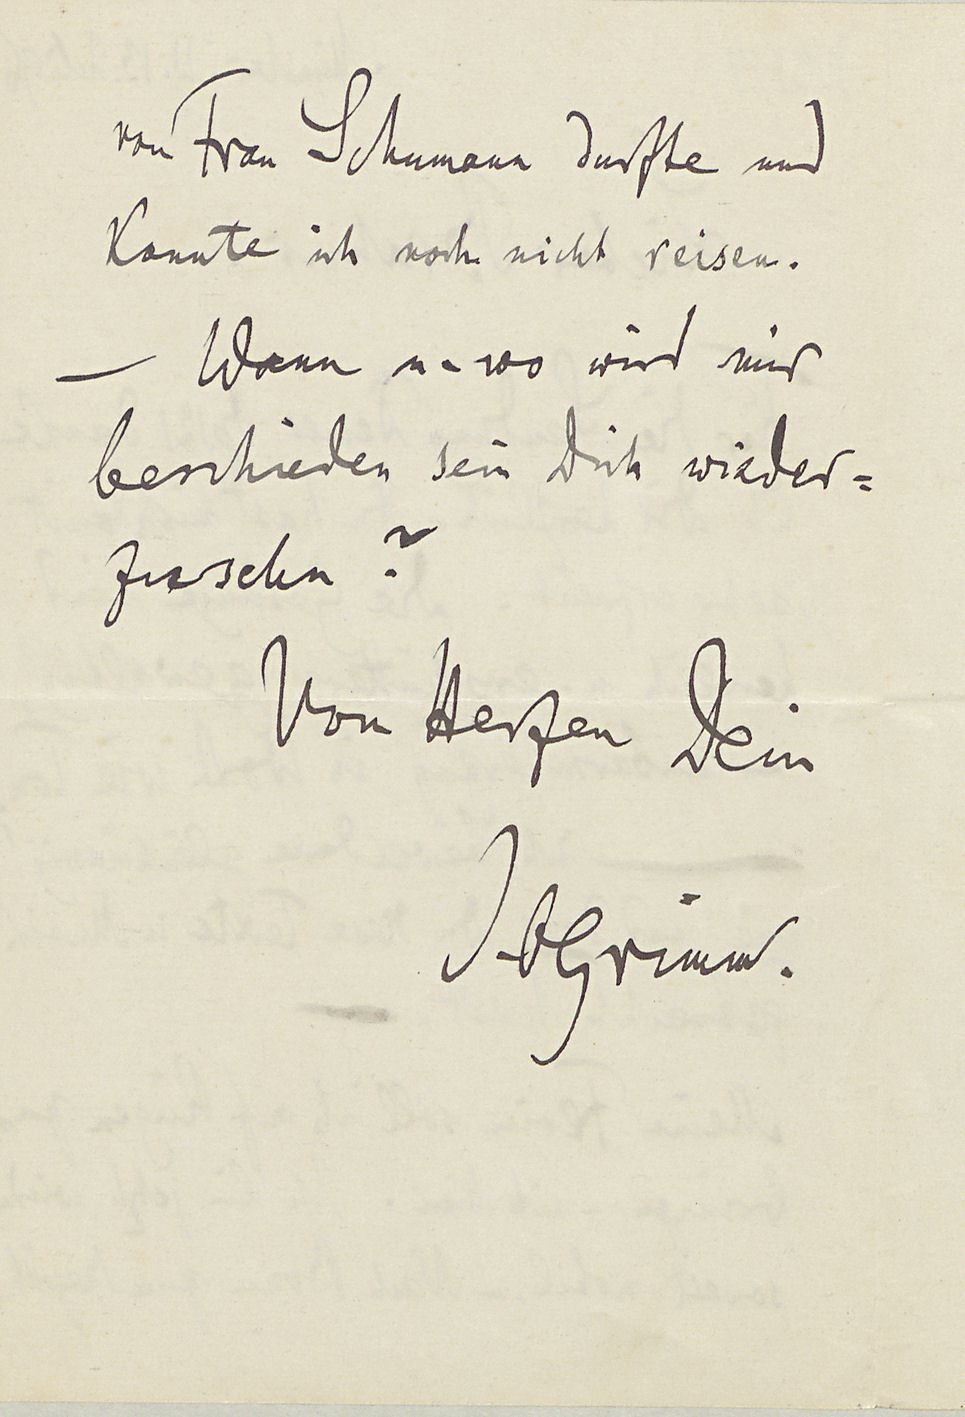 von Frau Schumann durfte und
konnte ich noch nicht reisen.
— Wann u. wo wird mir
beschieden sein Dich wieder=
zusehn?
Von Herzen Dein
JOGrimm.